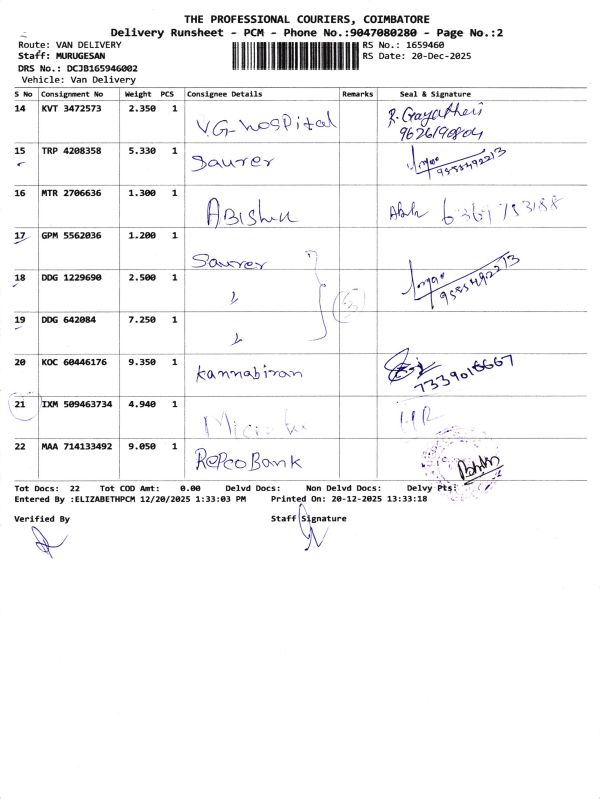 THE PROFESSIONAL COURIERS, COIMBATORE
Delivery Runsheet - PCM - Phone No.:9047080280 - Page No.:2
Route: VAN DELIVERY
RS No.: 1659460
Staff: MURUGESAN
RS Date: 20-Dec-2025
DRS No.: DCJB165946002
Vehicle: Van Delivery
S No Consignment No Weight PCS Consignee Details Remarks Seal & Signature
14 KVT 3472573 2.350 1 VG-hospital R.Gayatheri
9626190804
15 TRP 4208358 5.330 1 Saurer 9555492213
16 MTR 2706636 1.300 1 ABishu 6369753188
17 GPM 5562036 1.200 1 Saurer
18 DDG 1229690 2.500 1 " 9555492213
19 DDG 642084 7.250 1 "
20 KOC 60446176 9.350 1 kannabiran 7339016667
21 IXM 509463734 4.940 1 HR
22 MAA 714133492 9.050 1 RepcoBank
Tot Docs: 22 Tot COD Amt: 0.00 Delvd Docs: Non Delvd Docs: Delvy Pts:
Entered By :ELIZABETHPCM 12/20/2025 1:33:03 PM Printed On: 20-12-2025 13:33:18
Verified By Staff Signature